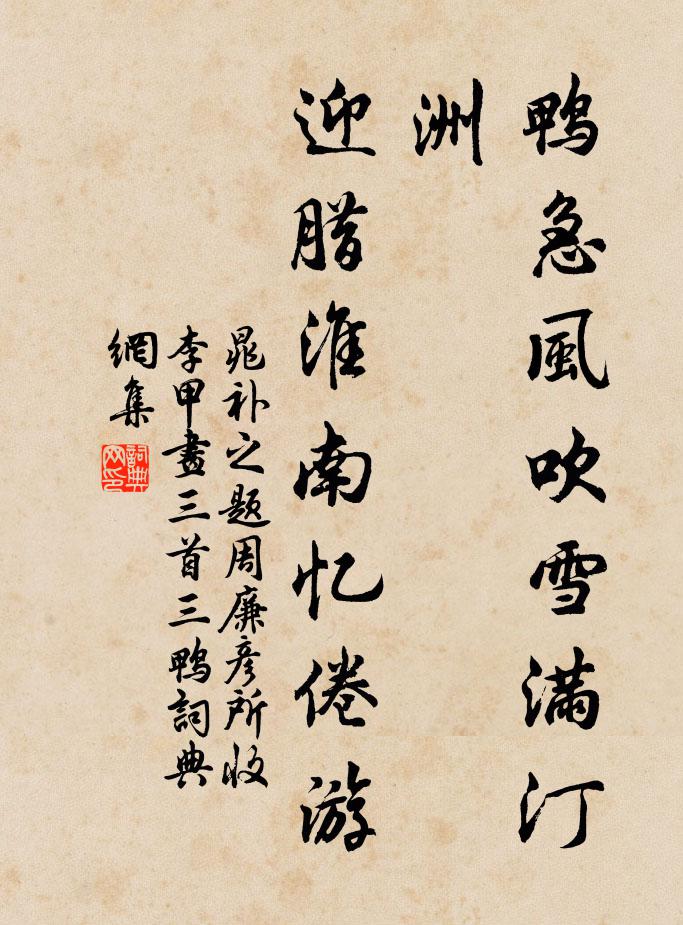 鸭急風吹雪满汀
洲
迎腊淮南忆倦游
晁补之题周廉彦所收
李甲畫三首三鸭詞典
網集
詞典网印